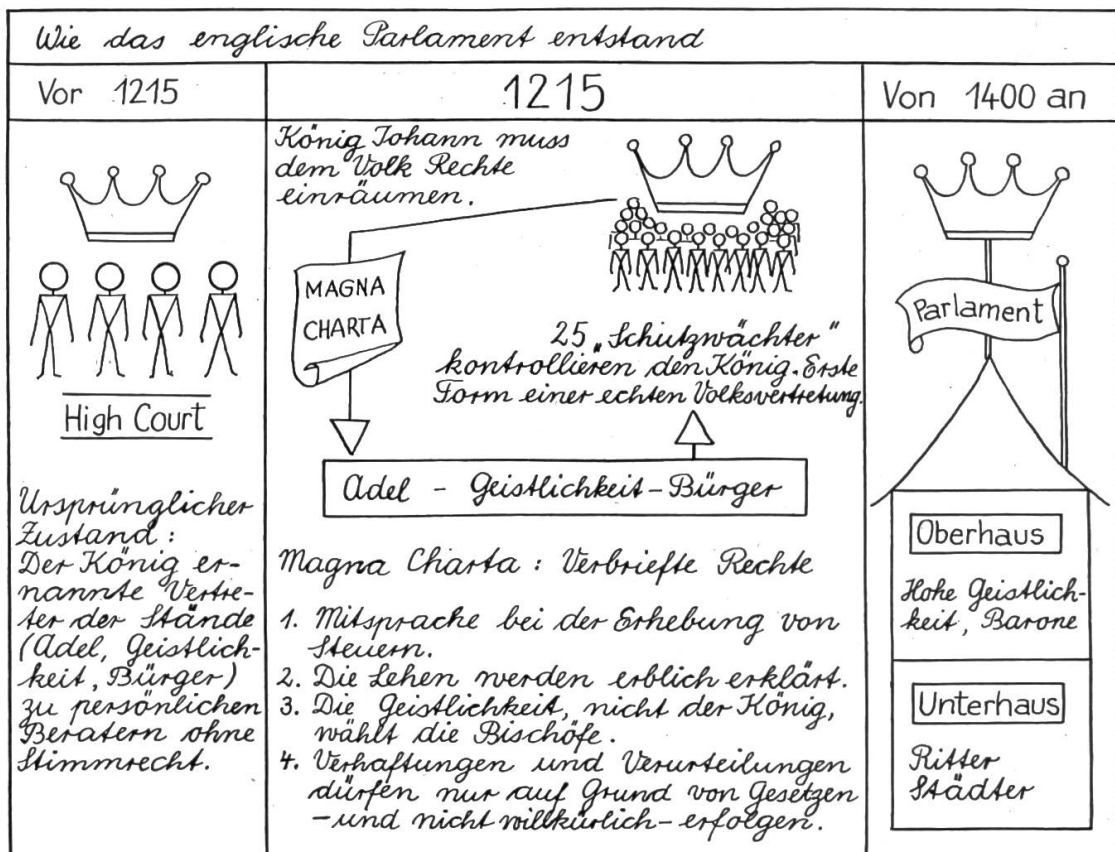 Wie das englische Parlament entstand
Vor 1215
High Court
Ursprünglicher
Zustand:
Der König er-
nannte Vertre-
ter der Stände
(Adel, Geistlich-
keit, Bürger)
zu persönlichen
Beratern ohne
Stimmrecht.
1215
König Johann muss
dem Volk Rechte
einräumen.
MAGNA
CHARTA
25 „Schutzwächter“
kontrollieren den König. Erste
Form einer echten Volksvertretung.
Adel - Geistlichkeit - Bürger
Magna Charta: Verbriefte Rechte
1. Mitsprache bei der Erhebung von
Steuern.
2. Die Lehen werden erblich erklärt.
3. Die Geistlichkeit, nicht der König,
wählt die Bischöfe.
4. Verhaftungen und Verurteilungen
dürfen nur auf Grund von Gesetzen
- und nicht willkürlich - erfolgen.
Von 1400 an
Parlament
Oberhaus
Hohe Geistlich-
keit, Barone
Unterhaus
Ritter
Städter